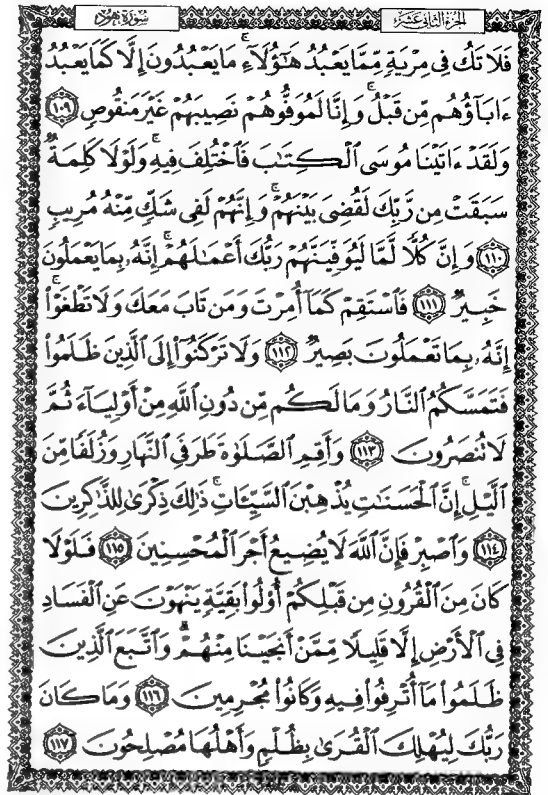 الجزء الثاني عشر
سورة هود
فَلَا تَكُ فِي مِرْيَةٍ مِّمَّا يَعْبُدُ هَٰٓؤُلَآءِۚ مَا يَعْبُدُونَ إِلَّا كَمَا يَعْبُدُ
ءَابَآؤُهُم مِّن قَبْلُۚ وَإِنَّا لَمُوَفُّوهُمْ نَصِيبَهُمْ غَيْرَ مَنقُوصٍ ١٠٩
وَلَقَدْ ءَاتَيْنَا مُوسَى الْكِتَٰبَ فَاخْتُلِفَ فِيهِۚ وَلَوْلَا كَلِمَةٌ
سَبَقَتْ مِن رَّبِّكَ لَقُضِيَ بَيْنَهُمْۚ وَإِنَّهُمْ لَفِي شَكٍّ مِّنْهُ مُرِيبٍ
١١٠ وَإِنَّ كُلًّا لَّمَّا لَيُوَفِّيَنَّهُمْ رَبُّكَ أَعْمَٰلَهُمْۚ إِنَّهُۥ بِمَا يَعْمَلُونَ
خَبِيرٌ ١١١ فَاسْتَقِمْ كَمَآ أُمِرْتَ وَمَن تَابَ مَعَكَ وَلَا تَطْغَوْا۟ۚ
إِنَّهُۥ بِمَا تَعْمَلُونَ بَصِيرٌ ١١٢ وَلَا تَرْكَنُوٓا۟ إِلَى الَّذِينَ ظَلَمُوا۟
فَتَمَسَّكُمُ النَّارُ وَمَا لَكُم مِّن دُونِ اللَّهِ مِنْ أَوْلِيَآءَ ثُمَّ
لَا تُنصَرُونَ ١١٣ وَأَقِمِ الصَّلَوٰةَ طَرَفَيِ النَّهَارِ وَزُلَفًا مِّنَ
الَّيْلِۚ إِنَّ الْحَسَنَٰتِ يُذْهِبْنَ السَّيِّـَٔاتِۚ ذَٰلِكَ ذِكْرَىٰ لِلذَّٰكِرِينَ
١١٤ وَاصْبِرْ فَإِنَّ اللَّهَ لَا يُضِيعُ أَجْرَ الْمُحْسِنِينَ ١١٥ فَلَوْلَا
كَانَ مِنَ الْقُرُونِ مِن قَبْلِكُمْ أُو۟لُوا۟ بَقِيَّةٍ يَنْهَوْنَ عَنِ الْفَسَادِ
فِي الْأَرْضِ إِلَّا قَلِيلًا مِّمَّنْ أَنجَيْنَا مِنْهُمْۗ وَاتَّبَعَ الَّذِينَ
ظَلَمُوا۟ مَآ أُتْرِفُوا۟ فِيهِ وَكَانُوا۟ مُجْرِمِينَ ١١٦ وَمَا كَانَ
رَبُّكَ لِيُهْلِكَ الْقُرَىٰ بِظُلْمٍ وَأَهْلُهَا مُصْلِحُونَ ١١٧